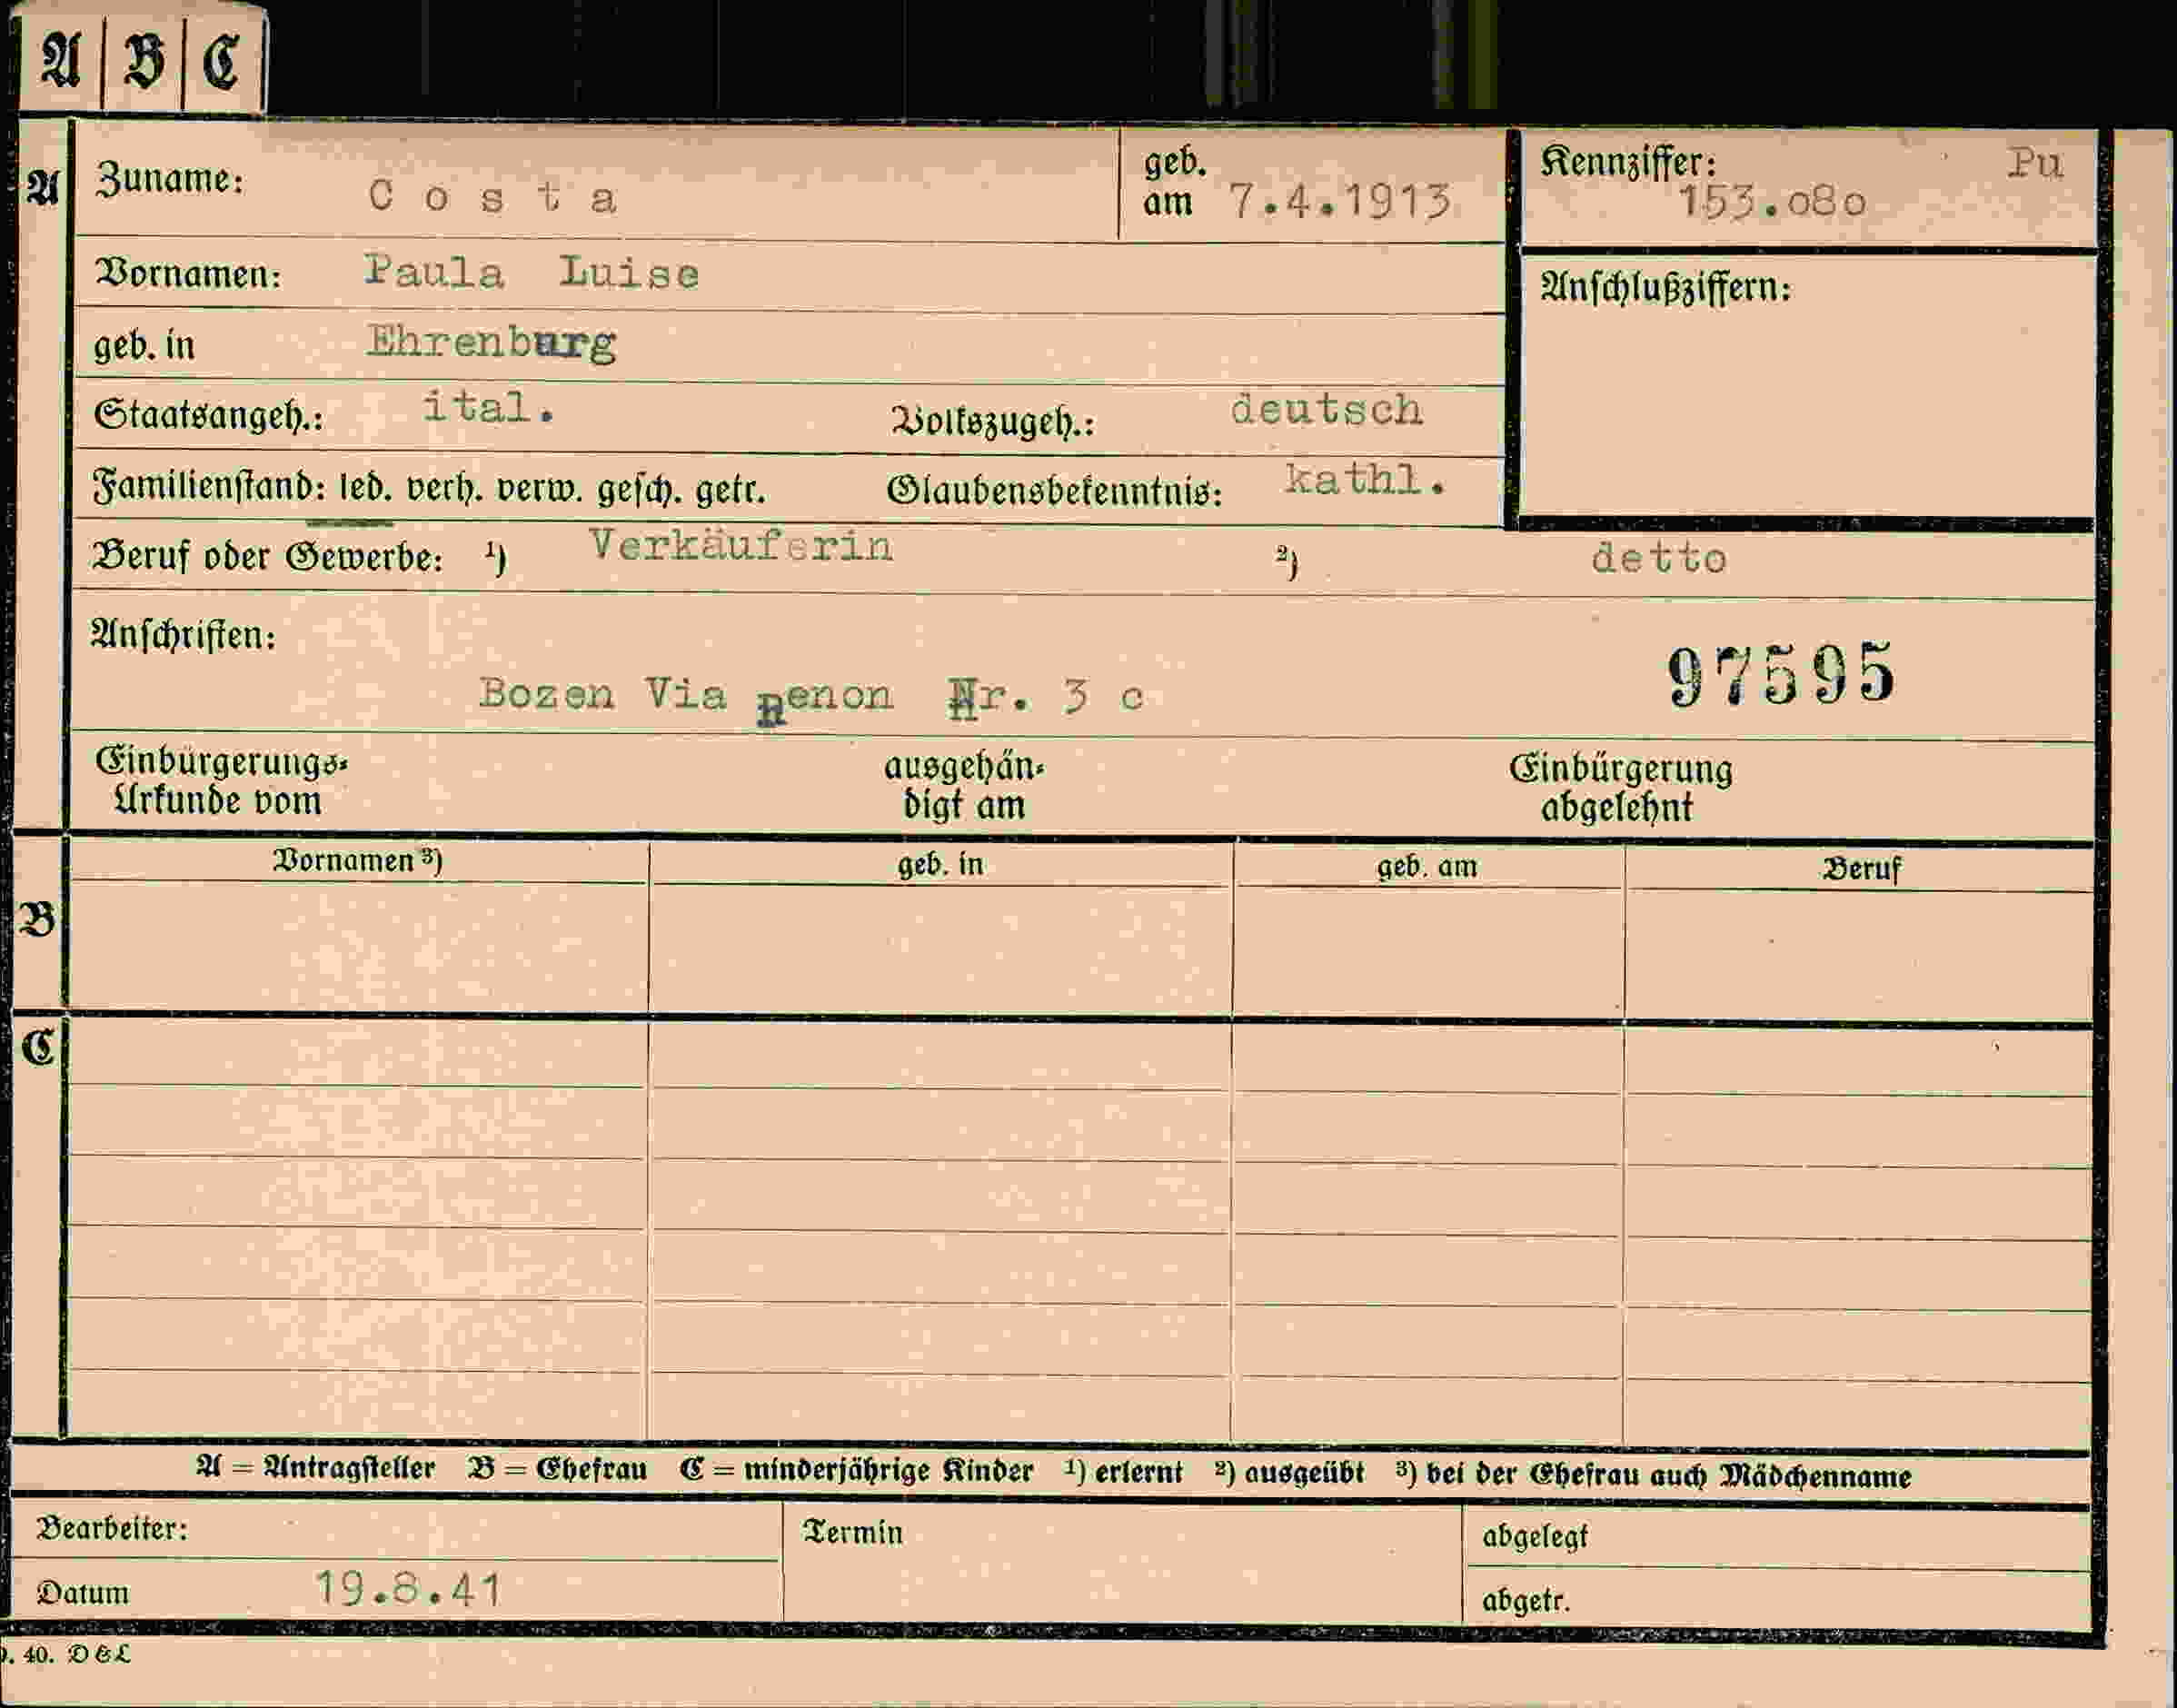 A B C
A
Zuname: Costa
geb. am 7.4.1913
Kennziffer: Pu
153.o8o
Vornamen: Paula Luise
Anschlußziffern:
geb. in Ehrenburg
Staatsangeh.: ital. Volkszugeh.: deutsch
Familienstand: led. verh. verw. gesch. getr. Glaubensbekenntnis: kathl.
Beruf oder Gewerbe: ¹) Verkäuferin ²) detto
Anschriften:
97595
Bozen Via Renon Nr. 3 c
Einbürgerungs-Urkunde vom
ausgehändigt am
Einbürgerung abgelehnt
Vornamen ³) geb. in geb. am Beruf
B
C
A = Antragsteller B = Ehefrau C = minderjährige Kinder ¹) erlernt ²) ausgeübt ³) bei der Ehefrau auch Mädchenname
Bearbeiter: Termin abgelegt
Datum 19.8.41 abgetr.
40. D & L